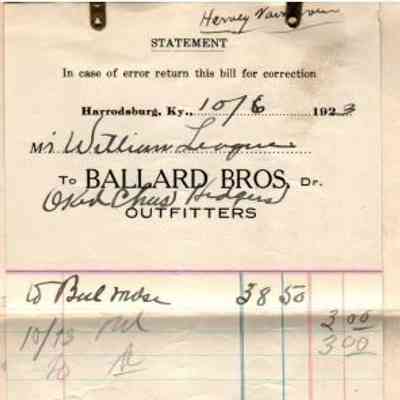 Hervey
STATEMENT
In case of error return this bill for correction
Harrodsburg, Ky., 10/6 1923
M's William League
To BALLARD BROS. Dr.
(Okd Chas Hedgers)
OUTFITTERS
To Bal mdse 38 50
2 00
10/13 3 00